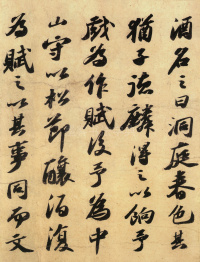 酒名之曰洞庭春色其
猶子德麟得之以餉予
戲為作賦後予為中
山守以松節釀酒復
為賦之以其事同而文